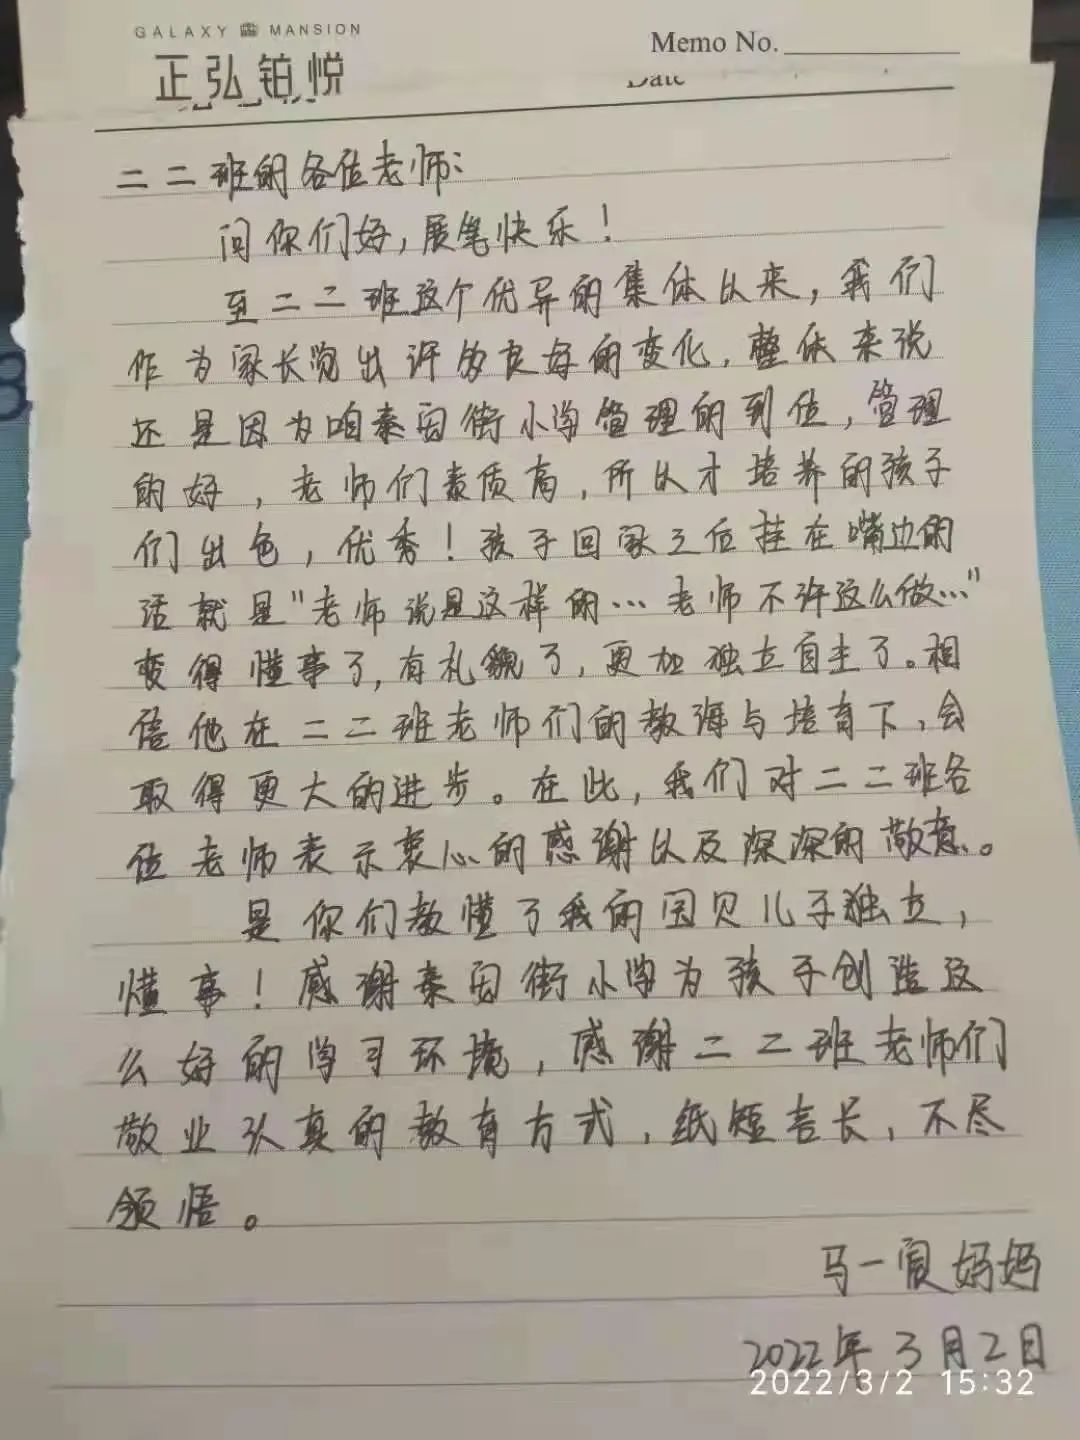 GALAXY MANSION
正弘铂悦
Memo No.
Date
二二班的各位老师:
问你们好,展笔快乐!
至二二班这个优异的集体以来,我们
作为家长觉出许多良好的变化,整体来说
还是因为咱秦因街小学管理的到位,管理
的好,老师们素质高,所以才培养的孩子
们出色,优秀!孩子回家之后挂在嘴边的
话就是"老师说是这样的…老师不许这么做…"
变得懂事了,有礼貌了,更加独立自主了。相
信他在二二班老师们的教诲与培育下,会
取得更大的进步。在此,我们对二二班各
位老师表示衷心的感谢以及深深的敬意。
是你们教懂了我的宝贝儿子独立,
懂事!感谢秦因街小学为孩子创造这
么好的学习环境,感谢二二班老师们
敬业认真的教育方式,纸短言长,不尽
领悟。
马一 妈妈
2022年3月2日
2022/3/2 15:32